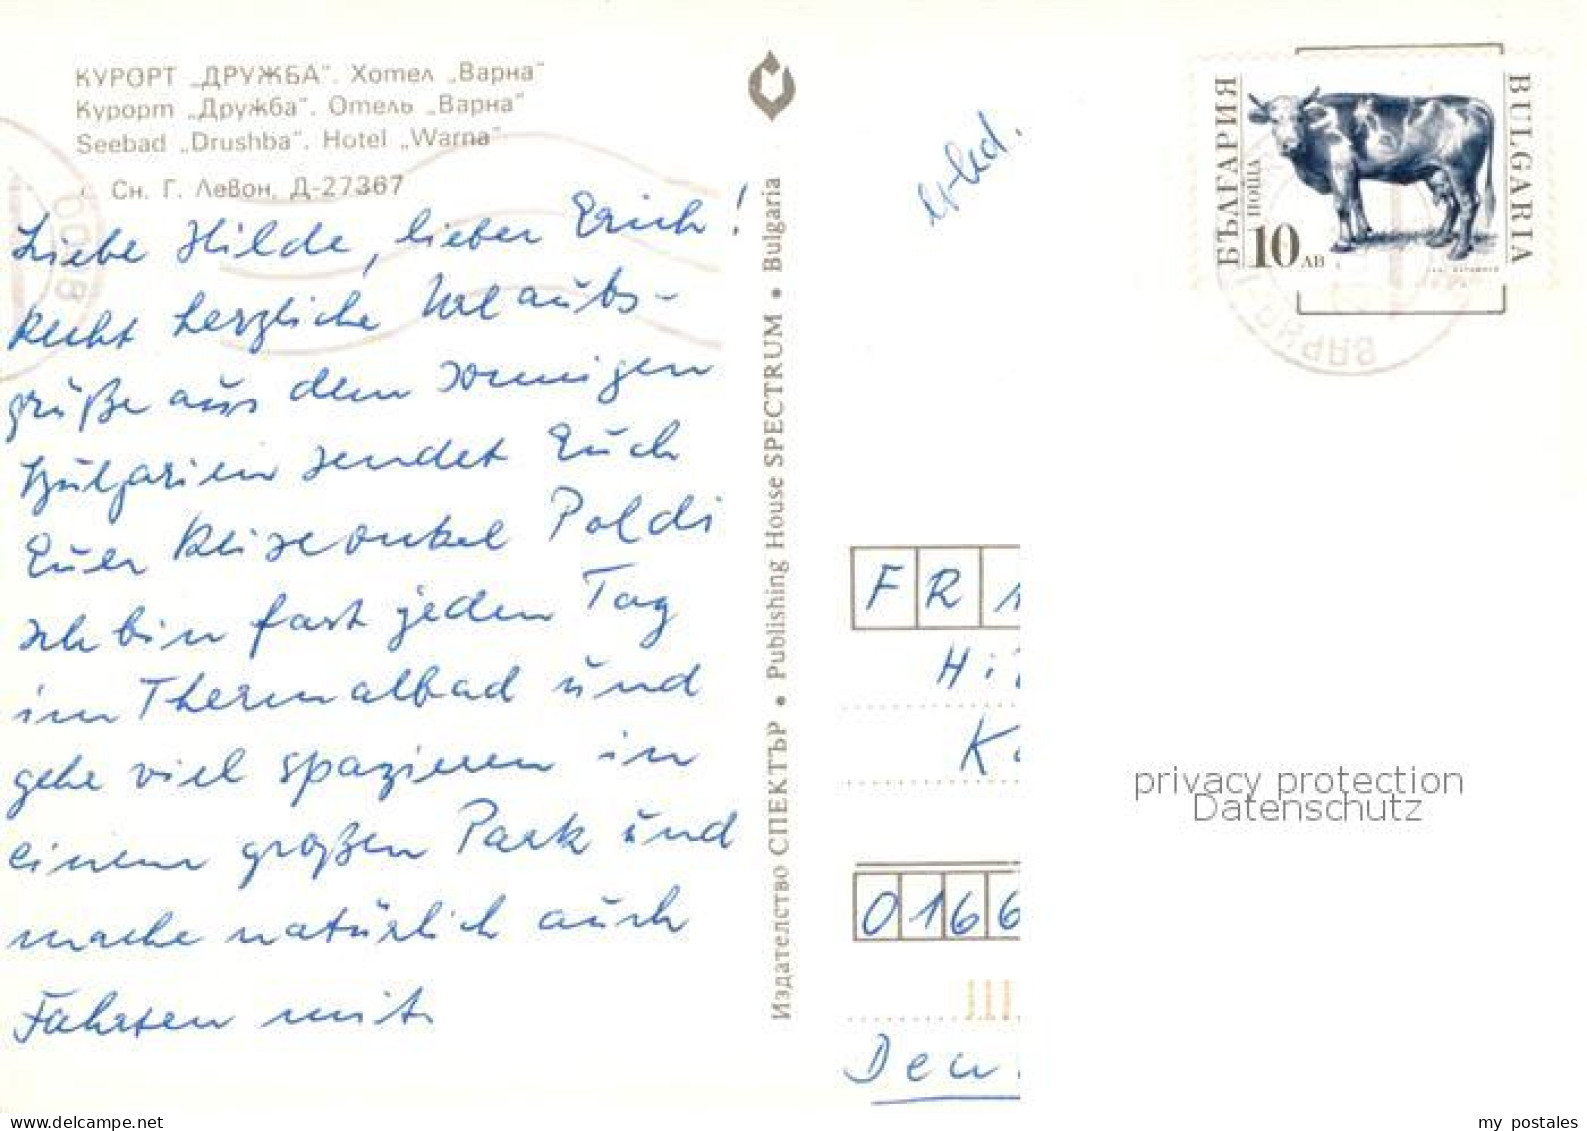 КУРОРТ „ДРУЖБА". Хотел „Варна"
Курорт „Дружба". Отель „Варна"
Seebad „Drushba". Hotel „Warna"
Сн. Г. Левон, Д-27367
Liebe Hilde, lieber Erich!
Recht herzliche Urlaubs-
grüße aus dem sonnigen
Bulgarien sendet Euch
Euer Reiseonkel Poldi
Ich bin fast jeden Tag
im Thermalbad und
gehe viel spazieren in
einem großen Park und
mache natürlich auch
Fahrten mit.
Издателство СПЕКТЪР • Publishing House SPECTRUM • Bulgaria
БЪЛГАРИЯ
ПОЩА
10 ЛВ
BULGARIA
ВАРНА
FR
Hi
K
0166
Deu
privacy protection
Datenschutz
my postales